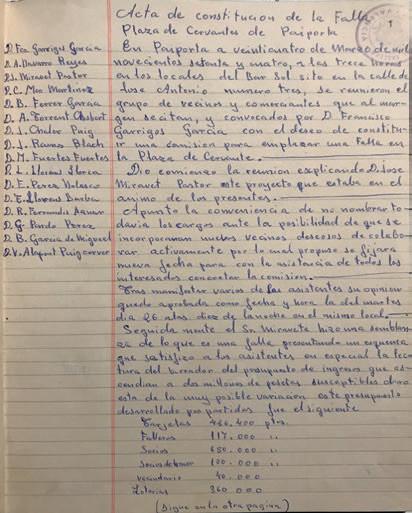 Acta de constitucion de la Falla
Plaza de Cervantes de Paiporta
1
D. Fco Garrigos Garcia
D. A. Navarro Reyes
D. J. Miravet Pastor
D. C. Mtez Martinez
D. B. Ferrer Garcia
D. A. Torrent Gisbert
D. J. Chaler Puig
D. J. Ramos Blach
D. M. Fuertes Fuertes
D. L. Llorens Lloria
D. E. Perez Velasco
D. E. Llorens Barba
D. R. Fernandis Aznar
D. G. Pardo Perez
D. B. Garcia de Miguel
D. V. Alapont Puigcerver
En Paiporta a veinticuatro de Marzo de mil
novecientos setenta y cuatro, a las trece horas
en los locales del Bar Sol sito en la calle de
Jose Antonio numero tres, se reunieron el
grupo de vecinos y comerciantes que al mar-
gen se citan, y convocados por D. Francisco
Garrigos Garcia con el deseo de constitu-
ir una comision para emplazar una Falla en
la Plaza de Cervante.
Dio comienzo la reunion explicando D. Jose
Miravet Pastor este proyecto que estaba en el
animo de los presentes.
Apunto la conveniencia de no nombrar to-
davia los cargos ante la posibilidad de que se
incorporaran nuevos vecinos deseosos de colabo-
rar activamente por lo cual propuso se fijara
nueva fecha para con la asistencia de todos los
interesados concretar la comision.
Tras manifestar varios de los asistentes su opinion
quedo aprobada como fecha y hora la del martes
dia 26 a las diez de la noche en el mismo local.
Seguida mente el Sr. Miravete hizo una semblan-
za de lo que es una falla presentando un esquema
que satisfizo a los asistentes en especial la lec-
tura del borrador del presupuesto de ingresos que as-
cendian a dos millones de pesetas susceptibles
esta de la muy posible variacion este presupuesto
desarrollado por partidas fue el siguiente
Tarjetas 466.400 ptas.
Falleros 117.000 "
Socios 650.000 "
Socios de honor 100.000 "
vecindario 40.000 "
Loterias 360.000
(Sigue en la otra pagina)